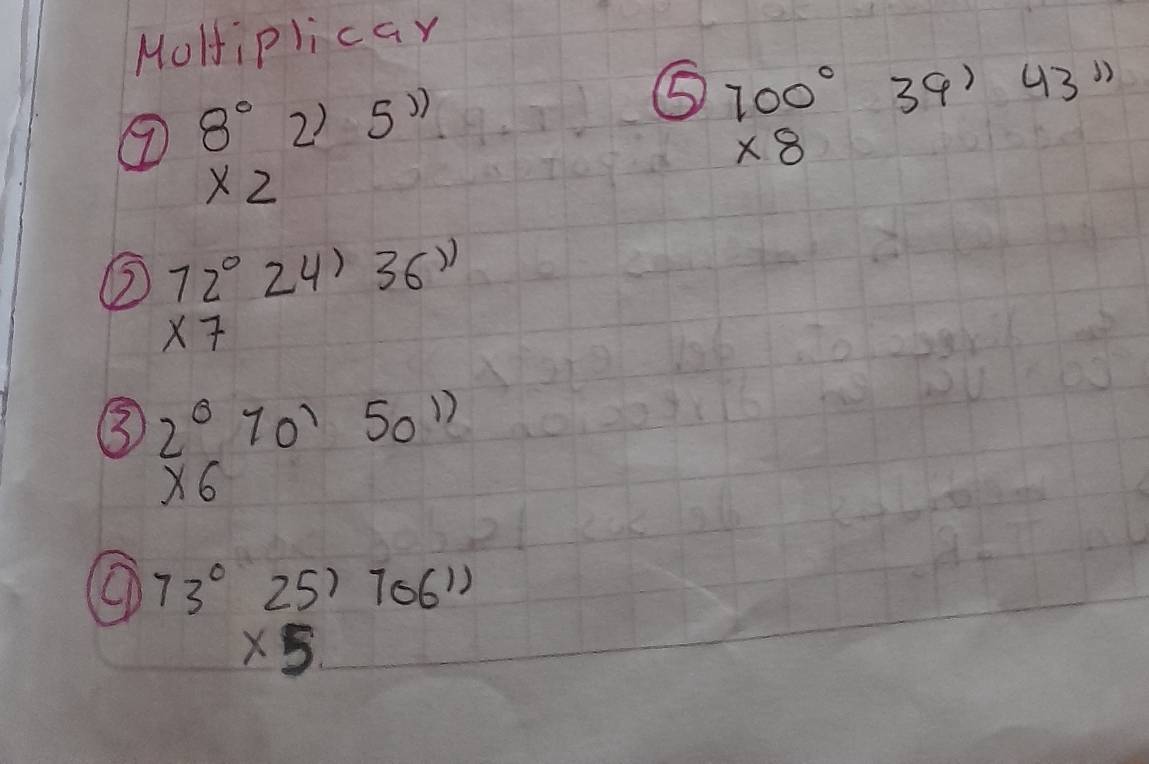 Multiplicar
① 8° 2' 5''
x 2
② 12° 24' 36''
x 7
③ 2° 10' 50''
x 6
④ 13° 25' 106''
x 5
⑤ 100° 39' 43''
x 8